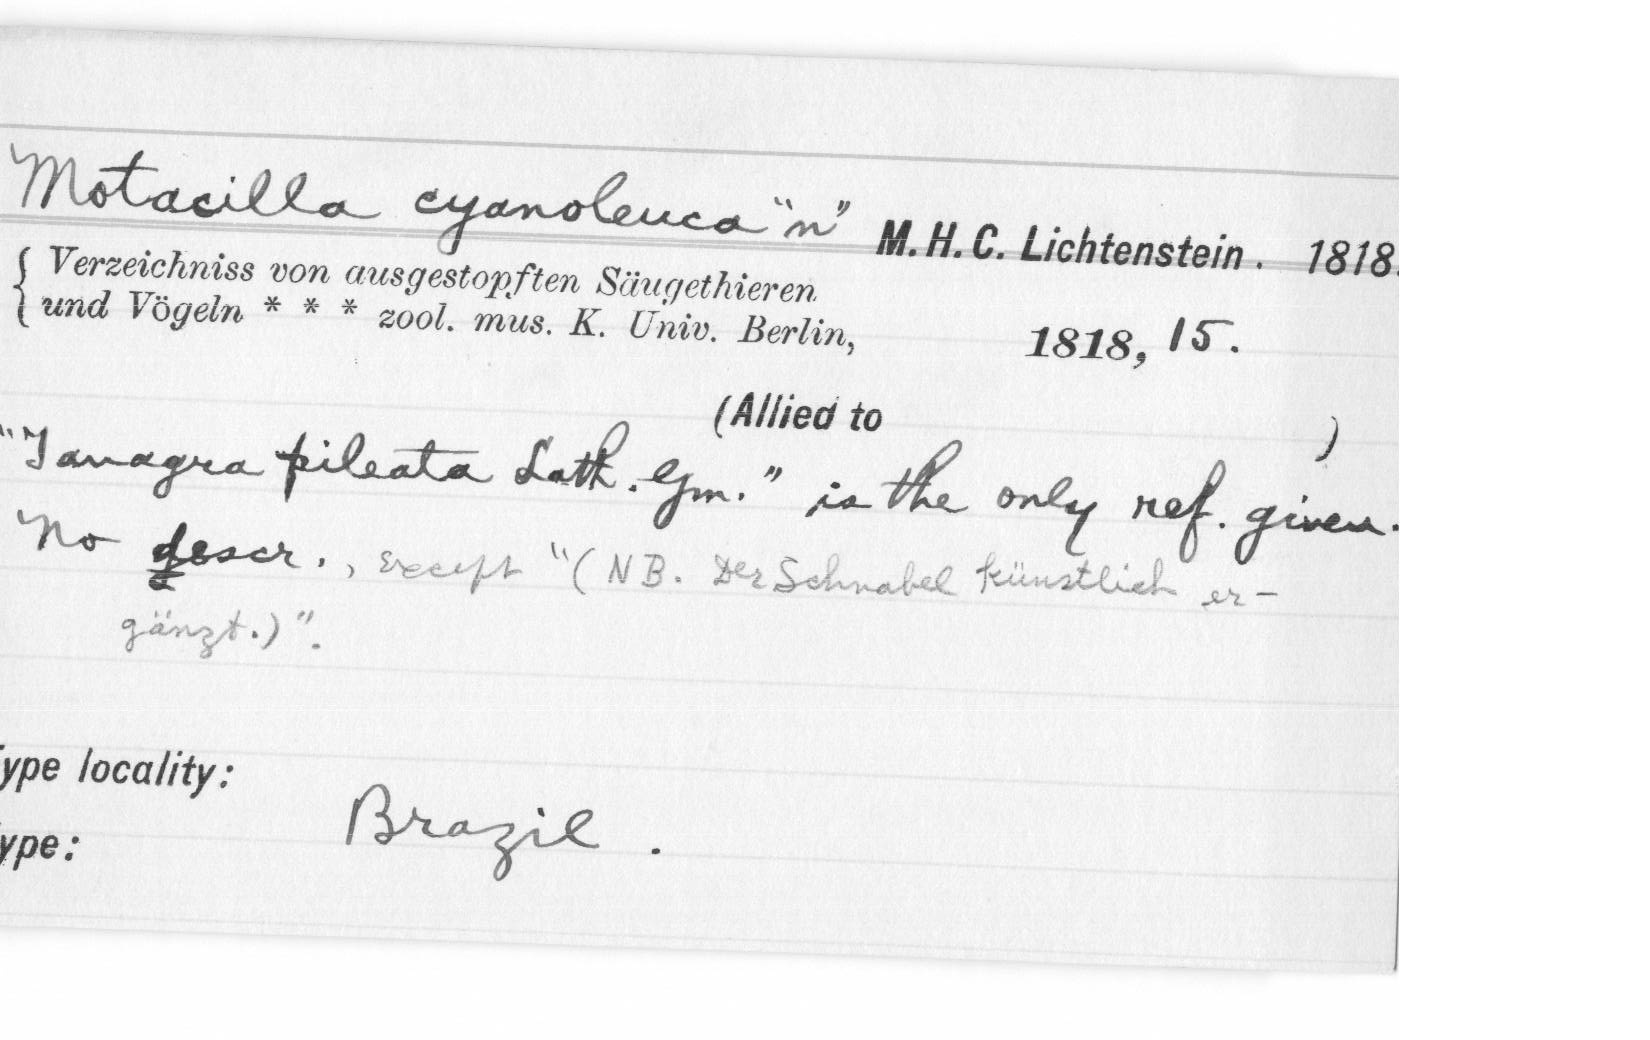 Motacilla cyanoleuca "n" M. H. C. Lichtenstein. 1818.
Verzeichniss von ausgestopften Säugethieren
und Vögeln * * * zool. mus. K. Univ. Berlin, 1818, 15.
(Allied to )
"Tanagra pileata Lath. Gm." is the only ref. given.
No descr., except "(NB. Der Schnabel künstlich er-
gänzt.)".
ype locality:
Brazil.
ype: